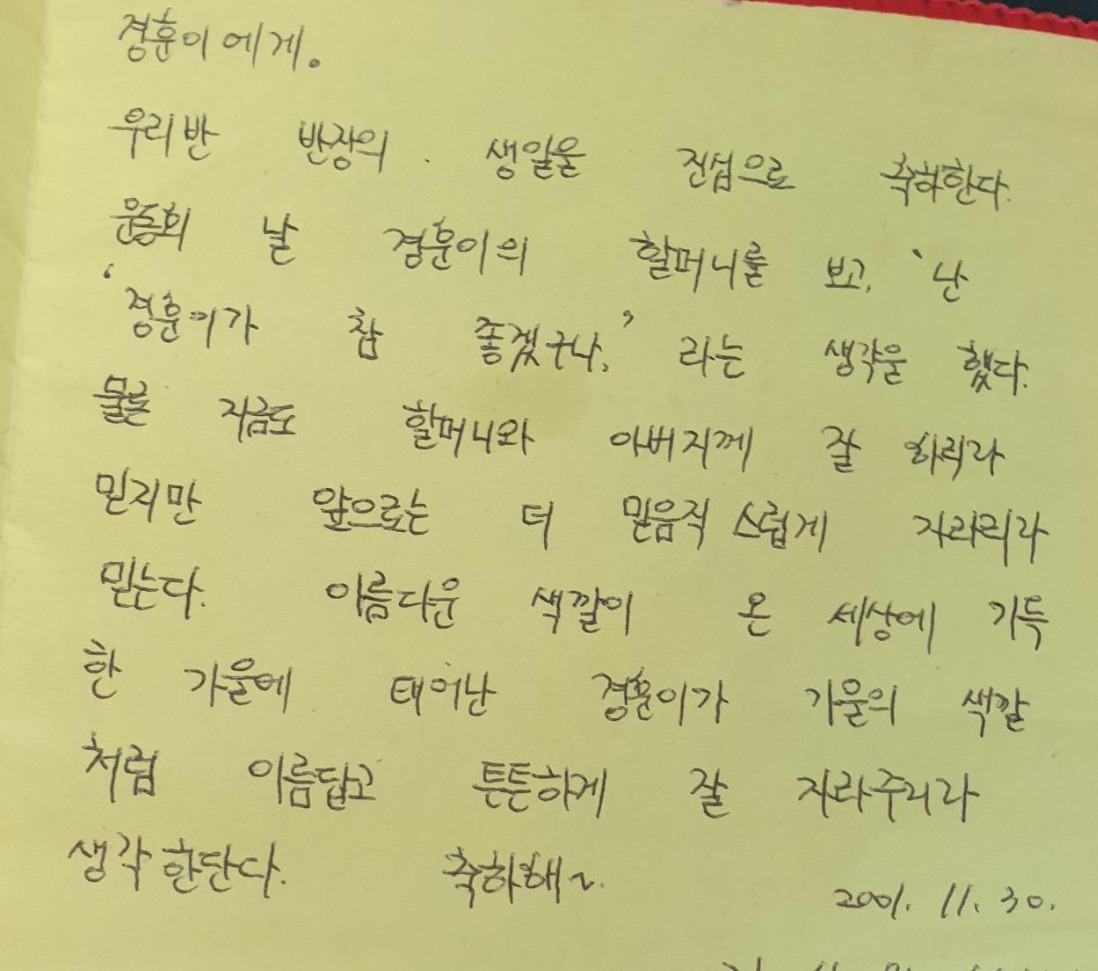 경훈이에게.
우리반 반장의 생일을 진심으로 축하한다.
운동회 날 경훈이의 할머니를 보고, '난
'경훈이가 참 좋겠구나,' 라는 생각을 했다.
물론 지금도 할머니와 아버지께 잘 하리라
믿지만 앞으로는 더 믿음직 스럽게 자라리라
믿는다. 아름다운 색깔이 온 세상에 가득
한 가을에 태어난 경훈이가 가을의 색깔
처럼 아름답고 튼튼하게 잘 자라주리라
생각한단다. 축하해~.
2001. 11. 30.